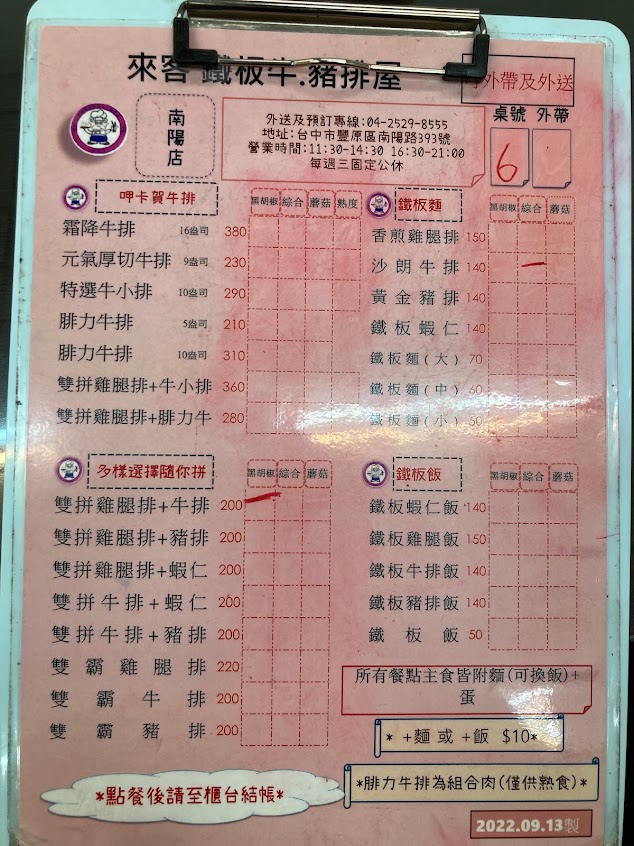 來客 鐵板牛.豬排屋
外帶及外送
南陽店
外送及預訂專線:04-2529-8555
地址:台中市豐原區南陽路393號
營業時間:11:30-14:30 16:30-21:00
每週三固定公休
桌號 外帶
6
呷卡賀牛排 黑胡椒 綜合 蘑菇 熟度
霜降牛排 16盎司 380
元氣厚切牛排 9盎司 230
特選牛小排 10盎司 290
腓力牛排 5盎司 210
腓力牛排 10盎司 310
雙拼雞腿排+牛小排 360
雙拼雞腿排+腓力牛 280
鐵板麵 黑胡椒 綜合 蘑菇
香煎雞腿排 150
沙朗牛排 140
黃金豬排 140
鐵板蝦仁 140
鐵板麵(大) 70
鐵板麵(中) 60
鐵板麵(小) 50
多樣選擇隨你拼 黑胡椒 綜合 蘑菇
雙拼雞腿排+牛排 200
雙拼雞腿排+豬排 200
雙拼雞腿排+蝦仁 200
雙拼牛排+蝦仁 200
雙拼牛排+豬排 200
雙霸雞腿排 220
雙霸牛排 200
雙霸豬排 200
鐵板飯 黑胡椒 綜合 蘑菇
鐵板蝦仁飯 140
鐵板雞腿飯 150
鐵板牛排飯 140
鐵板豬排飯 140
鐵板飯 50
所有餐點主食皆附麵(可換飯)+
蛋
* +麵 或 +飯 $10*
*腓力牛排為組合肉(僅供熟食)*
*點餐後請至櫃台結帳*
2022.09.13製